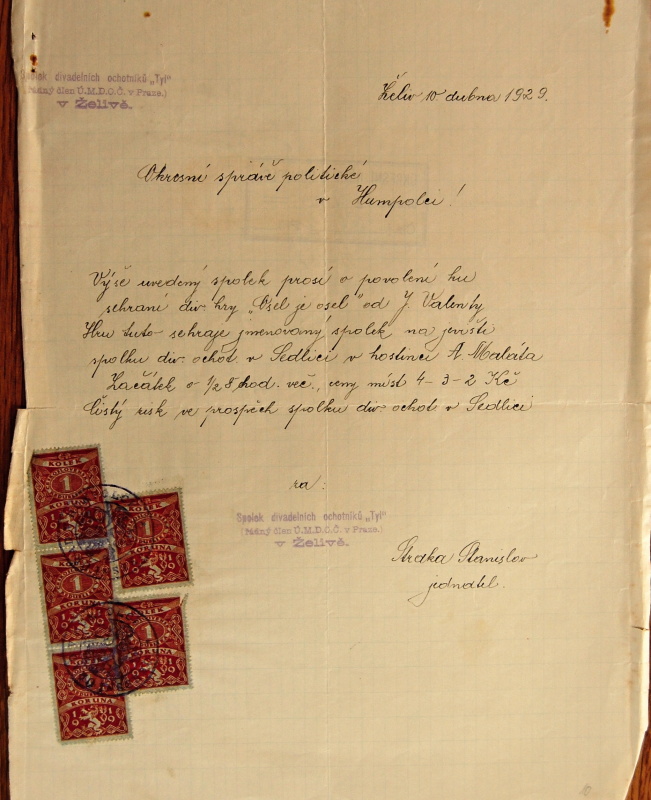 Spolek divadelních ochotníků „Tyl“
(řádný člen Ú.M.D.O.Č. v Praze.)
v Želivě.
Želiv 10. dubna 1929.
Okresní správě politické
v Humpolci!
Výše uvedený spolek prosí o povolení ku
sehraní div. hry „Osel je osel" od J. Valenty
Hru tuto sehraje jmenovaný spolek na jevišti
spolku div. ochot v Sedlici v hostinci A. Maláta
Začátek o 1/2 8 hod. več., ceny míst 4-3-2 Kč
Čistý zisk ve prospěch spolku div. ochot v Sedlici
za:
Spolek divadelních ochotníků „Tyl“
(řádný člen Ú.M.D.O.Č. v Praze.)
v Želivě.
Straka Stanislav
jednatel.
KOLEK
1
KORUNA
1919
KOLEK
1
KORUNA
KOLEK
1
KORUNA
KOLEK
1
KORUNA
KORUNA